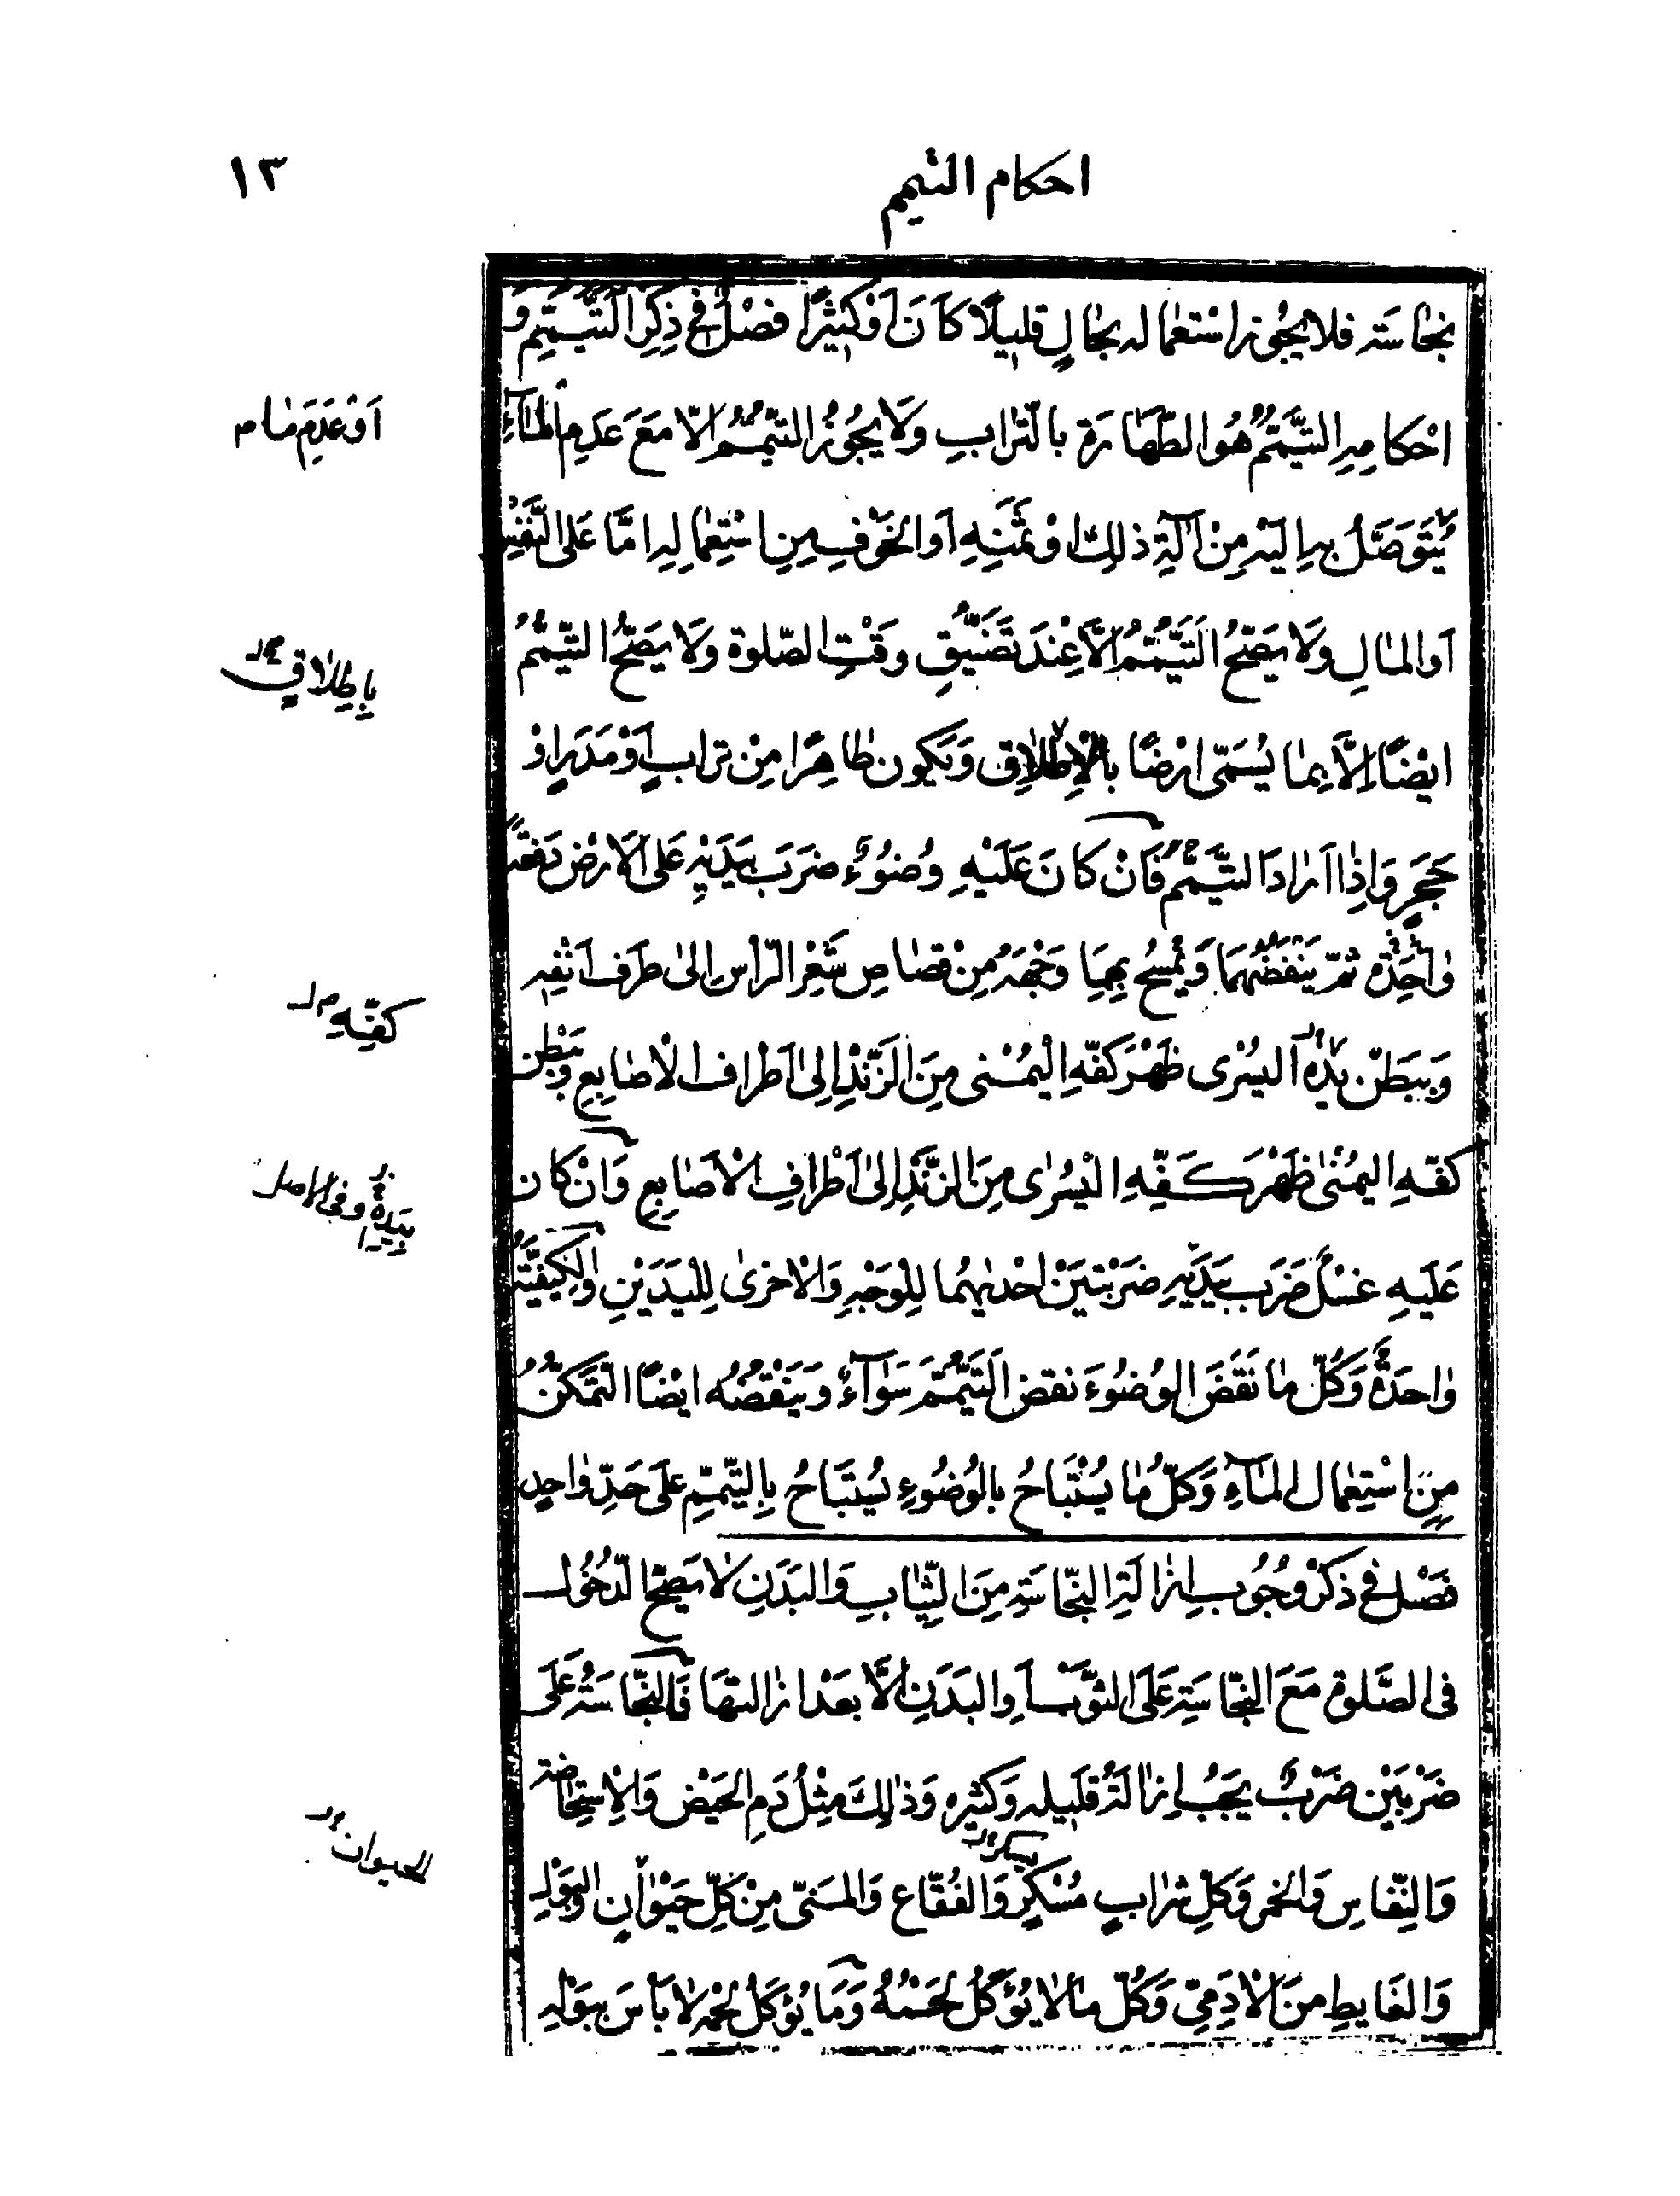 احكام التيمم
١٣
نجاسته فلا يجوز استعماله بحالٍ قليلًا كانَ اَوْ كَثيرًا فصْلٌ في ذِكِر التَّيَمّمِ وَ
اَحْكامِه التيَّمّمُ هُوَ الطّهٰارَة بالتّرابِ وَلا يَجُوزُ التيمّمُ الّا مَعَ عَدَمِ المٰآءِ
اَوْ عَدَمِ مٰا م
يُتَوَصَّلُ بِه اِليْهِ مِنْ آلَةِ ذٰلِكَ اوْ ثَمَنِهِ اَو الخَوْفِ مِنِ اسْتِعْمٰالِهِ امَّا عَلَى النَّفْسِ
اَو المٰالِ وَلا يَصَحّ التَيَّمّمُ الَّا عِنْدَ تَضَيّقِ وَقْتِ الصّلوة وَلا يَصحّ التيّممُّ
بِاِطْلاقٍ
ايْضًا اِلَّا بِمٰا يُسَمّى ارْضًا بالْاِطْلاقِ وَيَكون طٰاهِرًا مِنْ ترابٍ اَوْ مَدَرٍ اوْ
حَجَرٍ وَاِذٰا اَرٰادَ التيَّمّمَ فَاِنْ كانَ عَلَيْهِ وُضُوُءٌ ضرَبَ بِيَدَيْهِ عَلى الاَرْض دَفعَةً
وٰاحِدَةً ثمّ يَنْفضُهُمَا وَيمْسَحُ بِهِمَا وَجْهَهُ مِنْ قصٰاصِ شَعْرِ الرّأسِ اِلىٰ طرَف اَنفِه
كفّهِ
وَبِبَطْن يَدِهِ اليُسْرى ظَهْرَ كَفّهِ الْيُمْنى مِنَ الزَّنْدِ اِلىٰ اَطْرٰاف الْاصٰابِعِ وَبِبَطْنِ
كفّهِ اليُمْنٰى ظَهْرَ كَفِّهِ الْيُسْرٰى مِنَ الزّنْدِ اِلىٰ اَطْرٰافِ الْاَصٰابِعِ وَاِنْ كان
بِيَدِهِ وفى الاصل
عَلَيهِ غسْلٌ ضَرَب بِيَدَيْهِ ضَرْبتَيْنِ اِحْديٰهُما لِلْوَجْهِ وَالْاخرىٰ لِلْيَدَيْنِ وَالكَيْفِيَّةُ
وٰاحدَةٌ وَكُلّ مٰا نَقَضَ الوُضُوءَ نقض التَيّمّمَ سَوٰآءٌ وَيَنْقضُه ايْضًا التمَّكنُّ
مِنِ اسْتِعْمٰال المٰآءِ وَكلّ مٰا يُسْتَبٰاحُ بالوُضُوءِ يُسْتَبٰاحُ بِالتيّممّ عَلى حَدّ وٰاحِدٍ
فصْل فى ذكْر وُجُوب اِزٰالَةِ النجّٰاسَةِ مِنَ الثّيٰابِ وَالبَدَنِ لا يَصحّ الدّخُول
فى الصَّلوة مَعَ النجّٰاسَةِ عَلَى الثّوْبِ اَوِ البَدَنِ اِلّا بَعْدَ ازٰالتهَا فَالنجّٰاسَةُ عَلَى
ضَرْبَيْن ضَرْبٌ يَجبُ اِزٰالَةُ قَليلِه وَكثيرِهِ وَذٰلِكَ مِثْلُ دَمِ الحَيْض وَالْاِسْتِحٰاضَة
الحيوان
يسكر
وَالنِّفٰاسِ وَالخمر وَكلّ شرٰابٍ مُسْكِرٍ وَالفُقّاع وَالمَنىّ مِنْ كلِّ حَيْوٰانٍ وَالبَوْلِ
وَالغَايطِ مِنَ الاٰدَمِىّ وَكُلّ مٰا لا يُؤكلُ لَحْمُهُ وَمَا يُؤكَلُ لَحْمُه لا بَأسَ بِبَوْلِهِ